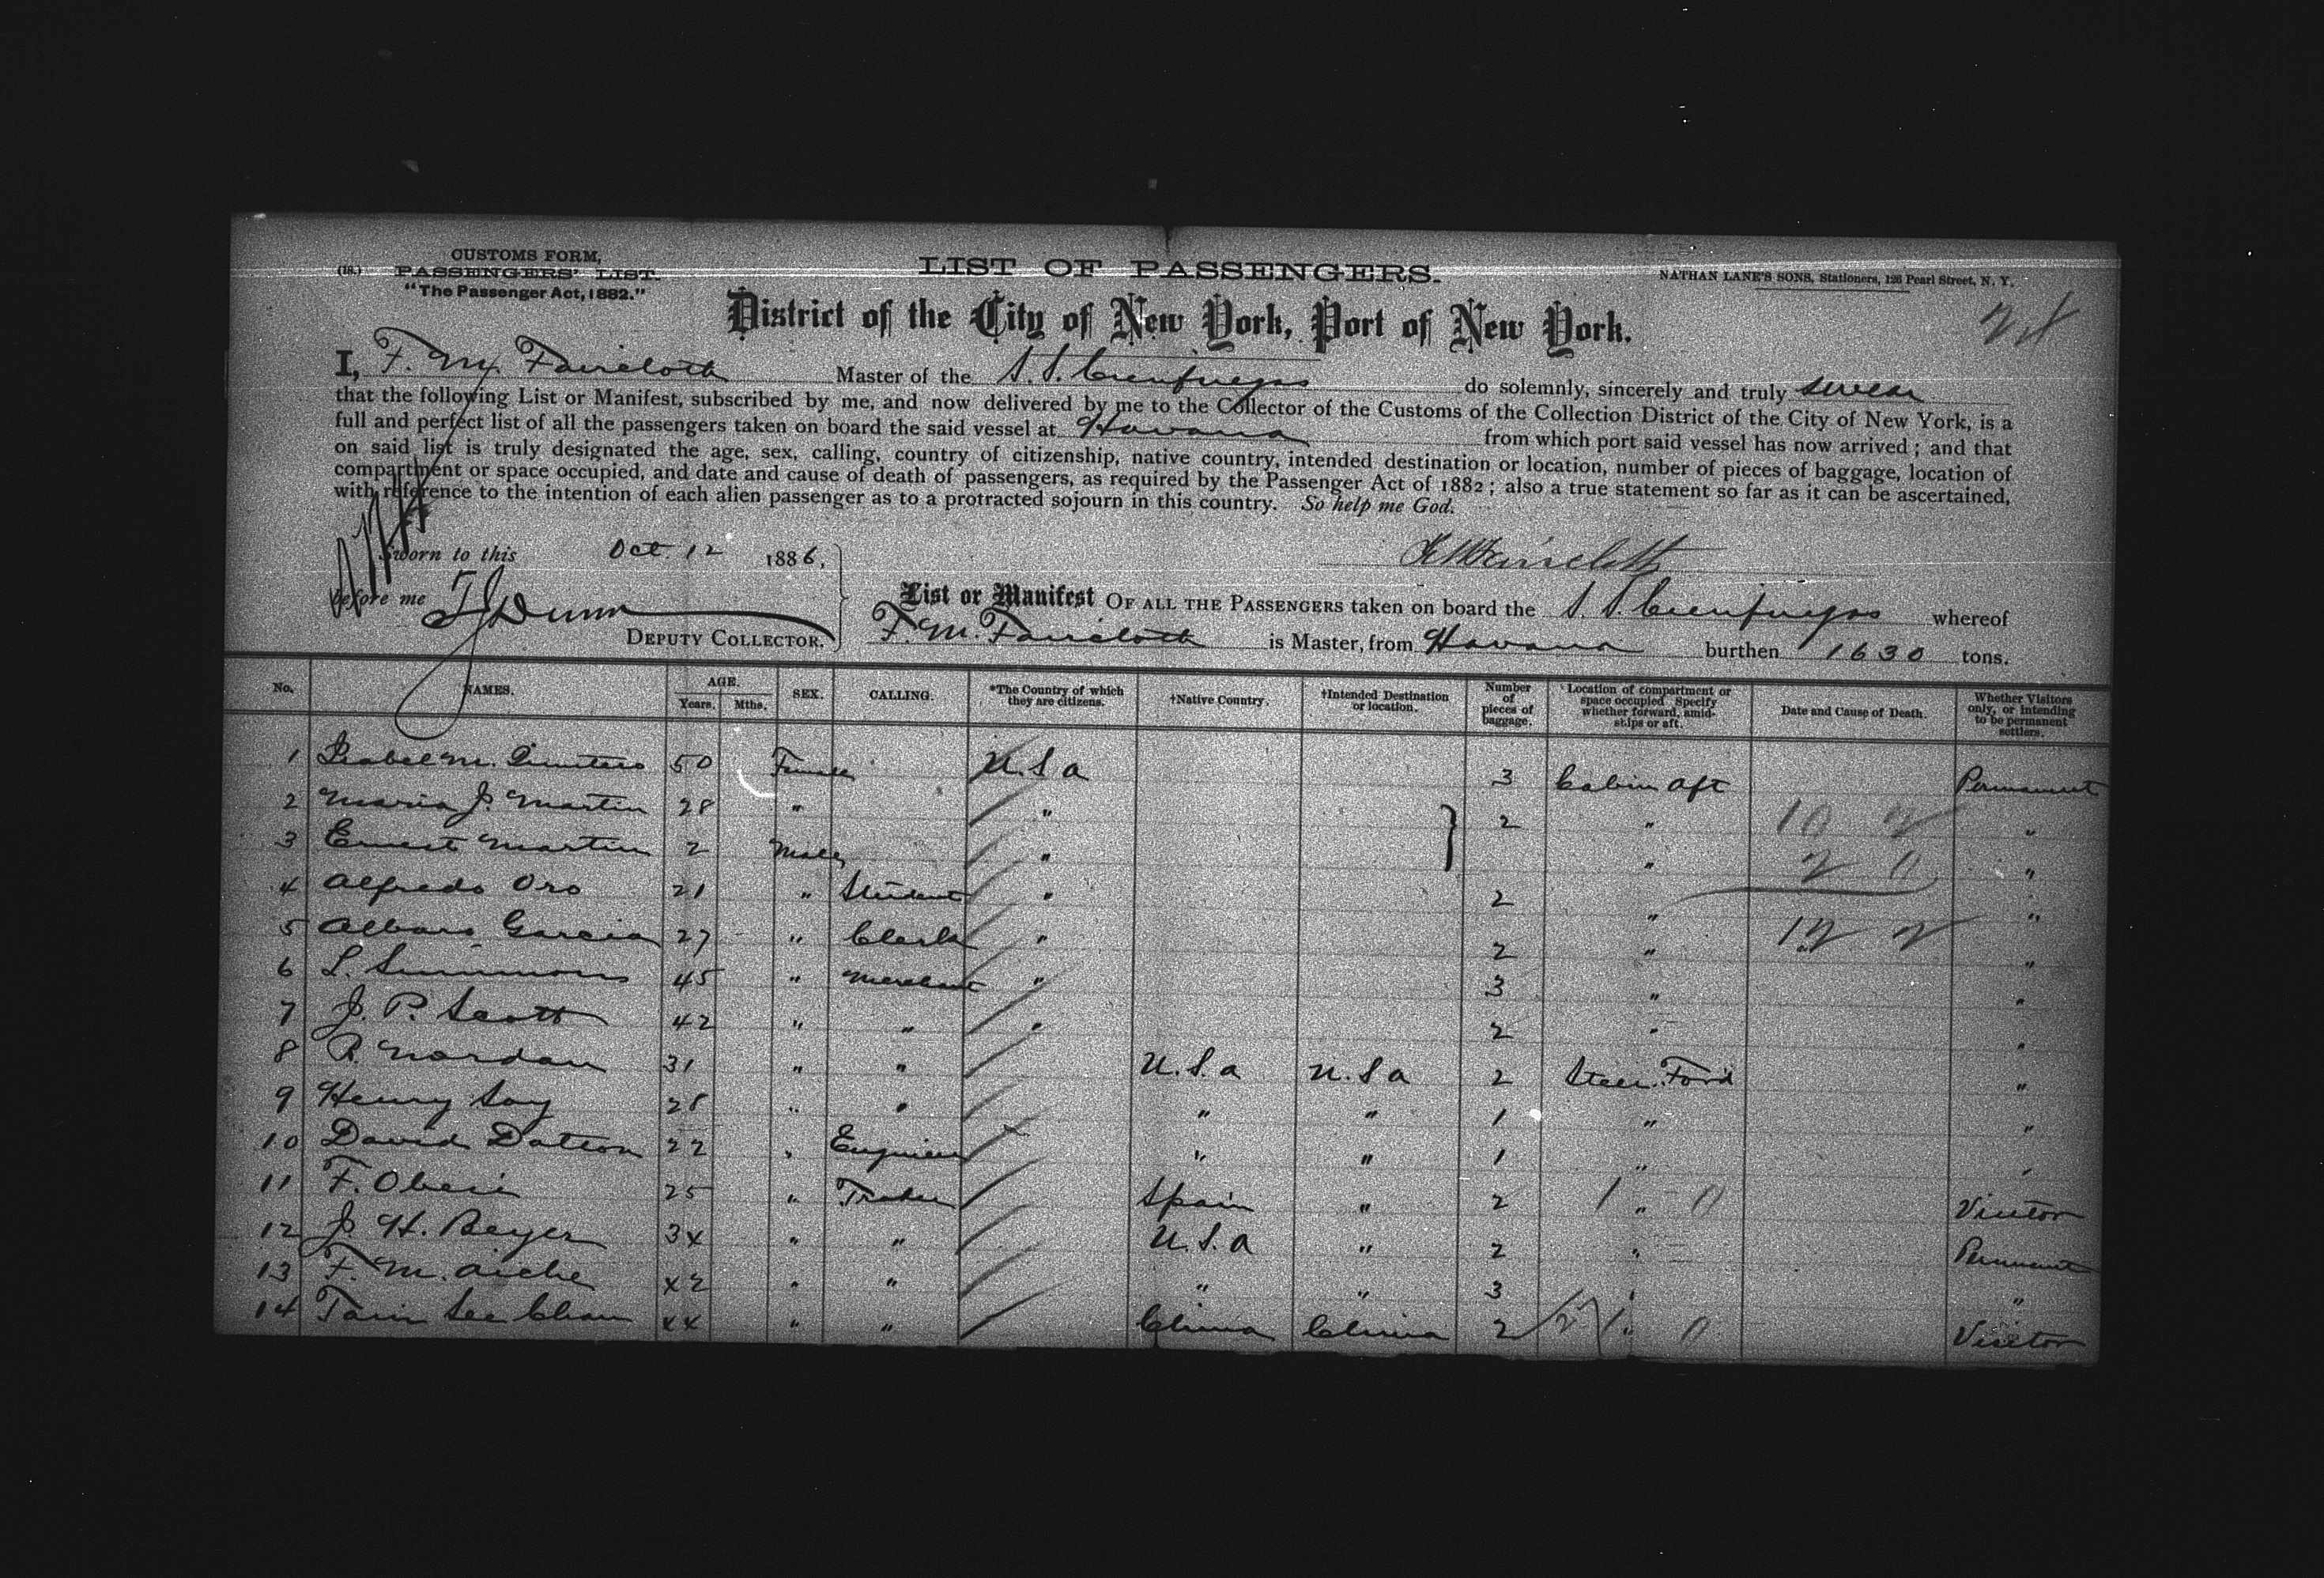 CUSTOMS FORM,
(18.) PASSENGERS' LIST.
"The Passenger Act, 1882."
LIST OF PASSENGERS.
NATHAN LANE'S SONS, Stationers, 126 Pearl Street, N. Y.
District of the City of New York, Port of New York.
I, F. M. Faircloth Master of the S.S. Cienfuegos do solemnly, sincerely and truly swear
that the following List or Manifest, subscribed by me, and now delivered by me to the Collector of the Customs of the Collection District of the City of New York, is a
full and perfect list of all the passengers taken on board the said vessel at Havana from which port said vessel has now arrived; and that
on said list is truly designated the age, sex, calling, country of citizenship, native country, intended destination or location, number of pieces of baggage, location of
compartment or space occupied, and date and cause of death of passengers, as required by the Passenger Act of 1882; also a true statement so far as it can be ascertained,
with reference to the intention of each alien passenger as to a protracted sojourn in this country. So help me God.
Sworn to this Oct. 12 1886,
before me T J Dunn
DEPUTY COLLECTOR.
F M Faircloth
List or Manifest OF ALL THE PASSENGERS taken on board the S. S. Cienfuegos whereof
F. M. Faircloth is Master, from Havana burthen 1630 tons.
No. NAMES. AGE. Years. Mths. SEX. CALLING. *The Country of which they are citizens. †Native Country. †Intended Destination or location. Number of pieces of baggage. Location of compartment or space occupied Specify whether forward, amidships or aft. Date and Cause of Death. Whether Visitors only, or intending to be permanent settlers.
1 Isabel M. 50 Female U.S.a 3 Cabin aft Permanent
2 Maria J. Martin 28 " " 2 " 10 2 "
3 Ernest Martin 2 Male " " 2 0 "
4 Alfredo Oro 21 " Student " 2 " "
5 Garcia 27 " Clerk " 2 " 12 2 "
6 L. Simmons 45 " Merchant " 3 " "
7 J. P. Scott 42 " " " 2 " "
8 31 " " U.S.a U.S.a 2 Steer. Ford "
9 Henry 28 " " " " 1 " "
10 David 22 " Engineer " " 1 " "
11 F. 25 " Trader Spain " 2 1 " 0 Visitor
12 J. H. Beyer 34 " " U.S.a " 2 " Permanent
13 F. M. 42 " " " " 3 " "
14 See Chan 44 " " China China 2 " 0 Visitor